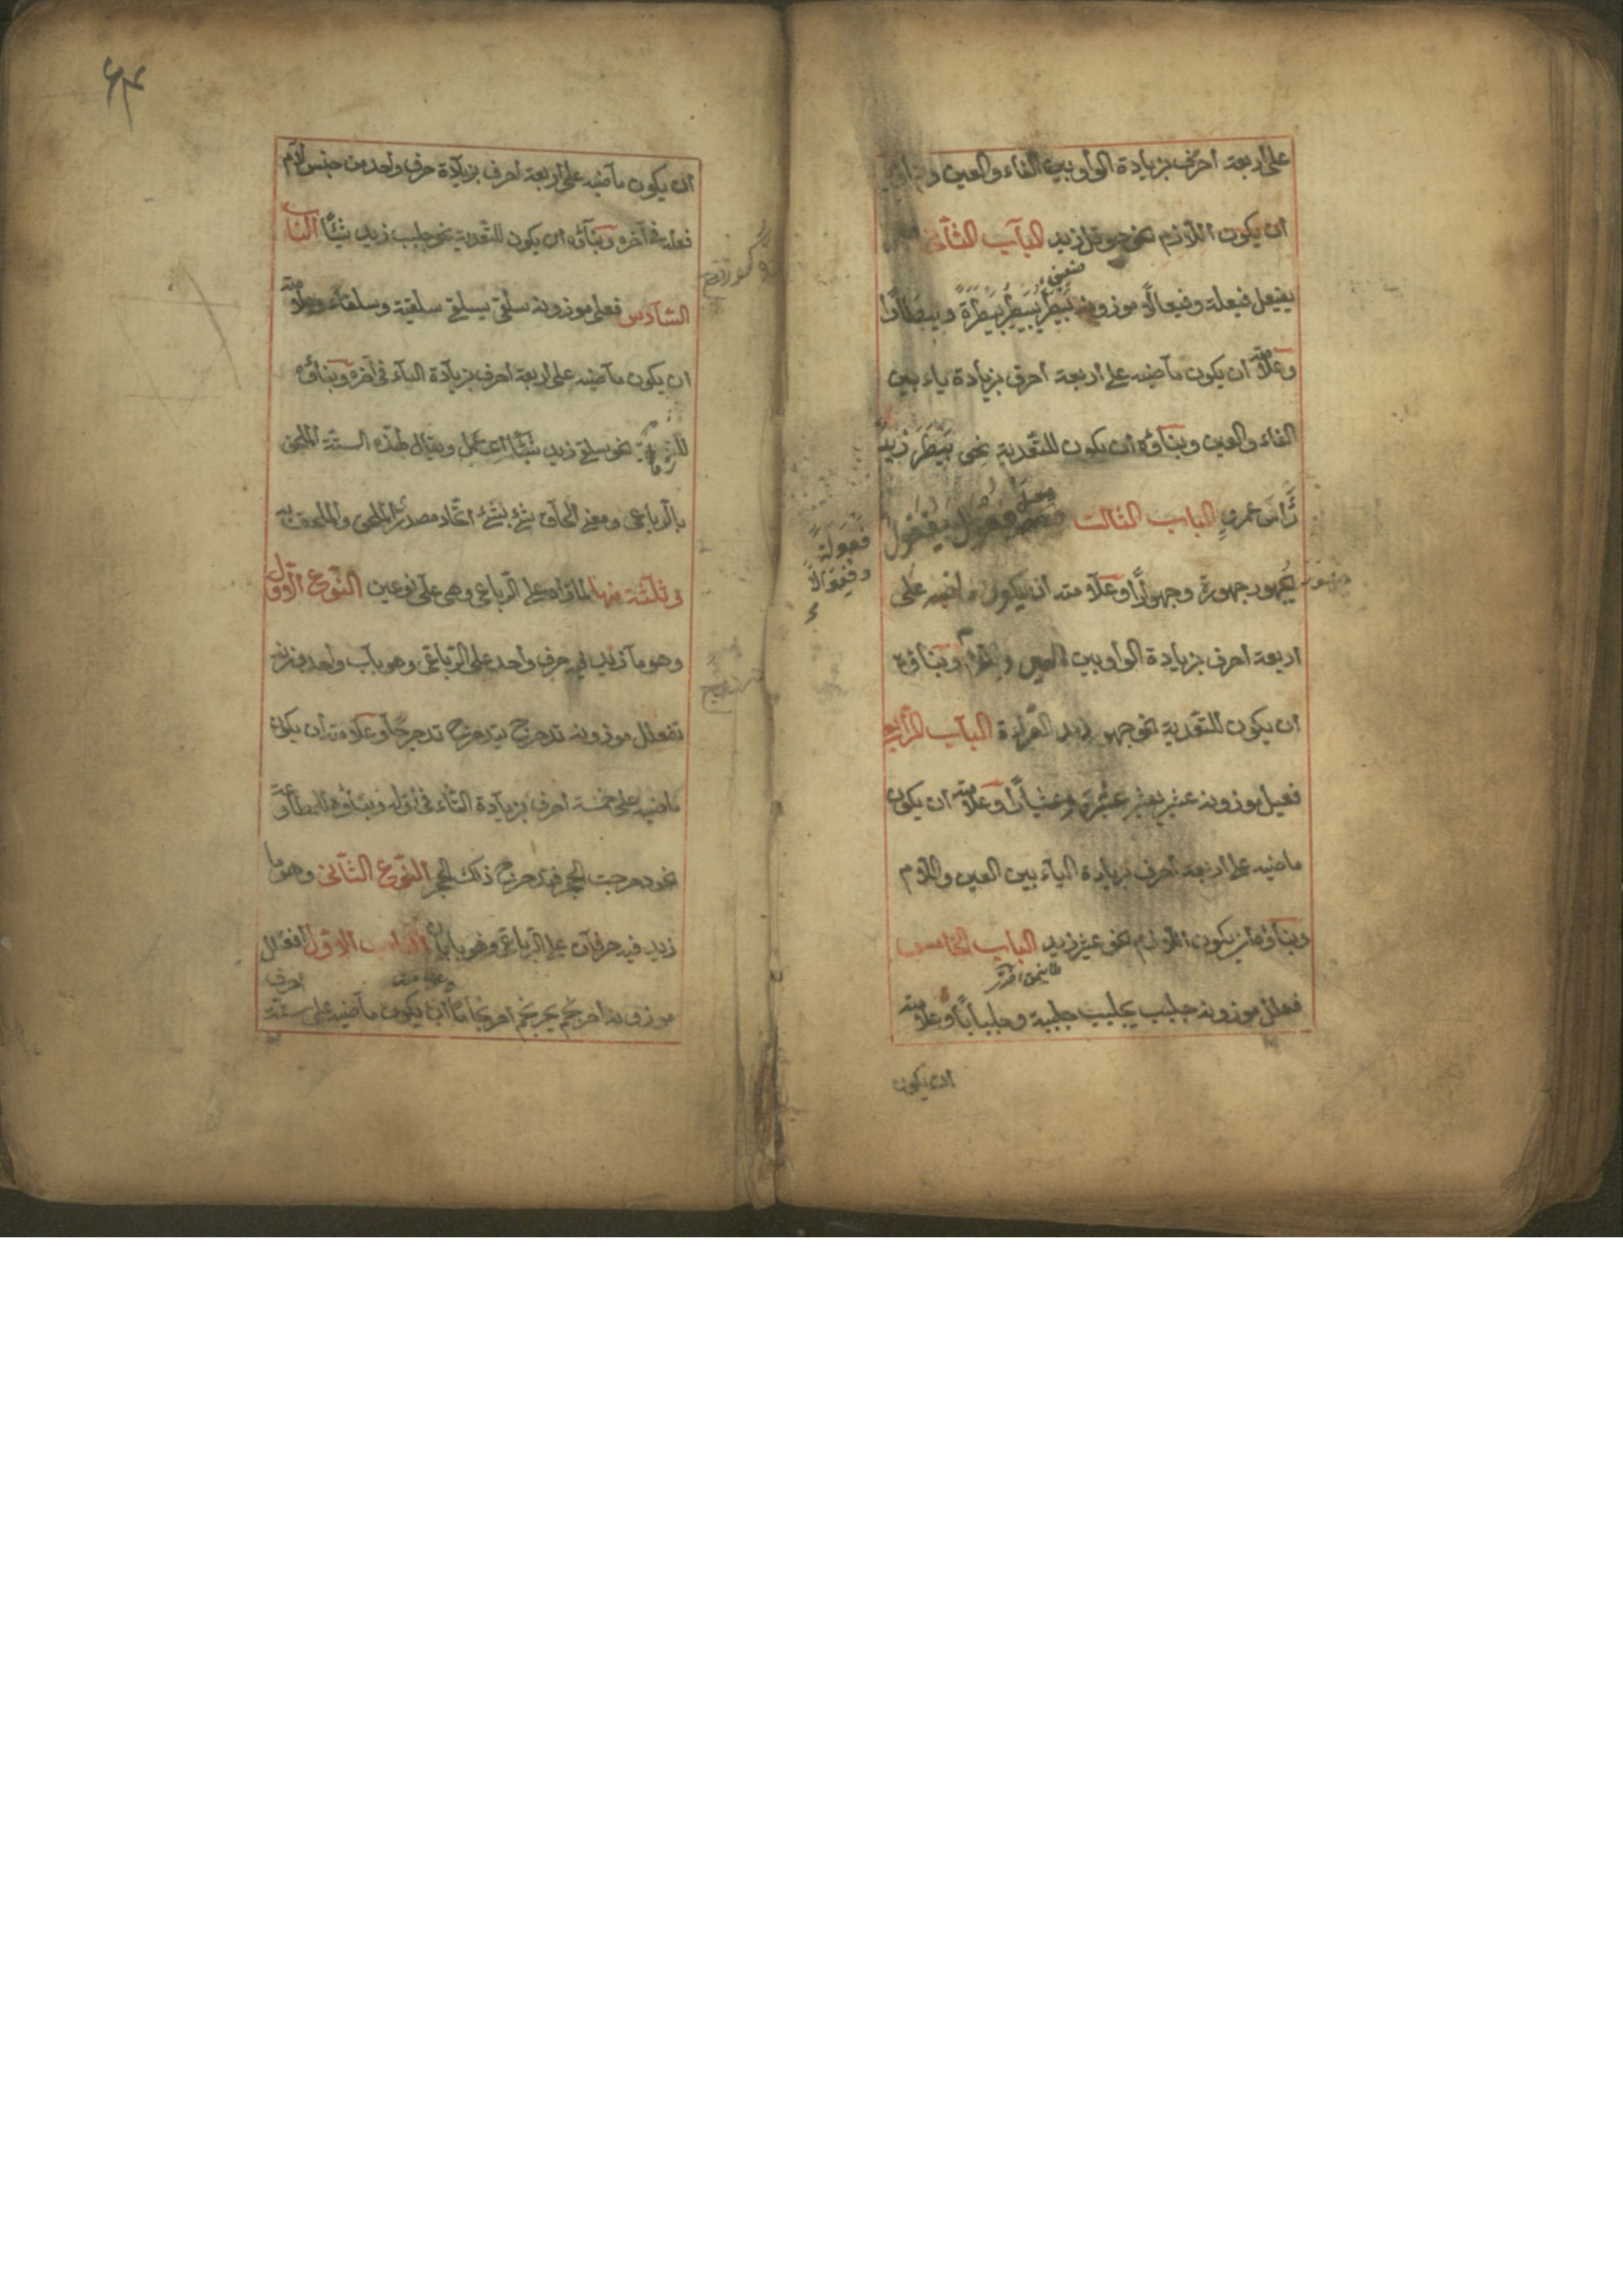 على أربعة أحرف بزيادة الواو بين الفاء والعين
أن يكون اللازم نحو حوقل زيد الباب الثانى
يفيعل فيعلة وفيعالا موزونه بَيْطَرَ يُبَيْطِرُ بَيْطَرَةً وبيطارًا
وعلامته أن يكون ماضيه على أربعة أحرف بزيادة ياء بين
الفاء والعين وبناؤه أن يكون للتعدية نحو بَيْطَرَ زيد
الباب الثالث فعول يفعول
فعولةً
وفعوالاً
يجهور جهورة وجهوارًا وعلامته أن يكون ماضيه على
اربعة احرف بزيادة الواو بين العين واللام وبناؤه
أن يكون للتعدية نحو جهور زيد القراءة الباب الرابع
فعيل موزونه عثير يعثير عثيرة وعثيارًا وعلامته ان يكون
ماضيه على أربعة أحرف بزيادة الياء بين العين واللام
وبناؤه أن يكون اللازم نحو عثير زيد الباب الخامس
فعلل موزونه جلبب يجلبب جلببة وجلبابًا وعلامته
ان يكون
ان يكون ماضيه على أربعة احرف بزيادة حرف واحد من جنس لام
فعله فى آخره وبناؤه ان يكون للتعدية نحو جلبب زيد شيئًا الباب
السادس فعلى موزونه سلقى يسلقى سلقية وسلقاء وعلامته
ان يكون ماضيه على اربعة احرف بزيادة الياء فى آخره وبناؤه
نحو سلقى زيد ويقال لهذه الستة الملحق
بالرباعى ومعنى الحاق شئ بشئ اتحاد مصدر الملحق والملحق به
وثلثة منها لما زاد على الرباعى وهى على نوعين النوع الأول
وهو ما زيد فيه حرف واحد على الرباعى وهو باب واحد وزنه
تفعلل موزونه تدحرج يتدحرج تدحرجًا وعلامته أن يكون
ماضيه على خمسة أحرف بزيادة التاء فى أوله وبناؤه للمطاوعة
نحو دحرجت الحجر فتدحرج ذلك الحجر النوع الثانى وهو ما
زيد فيه حرفان على الرباعى وهو بابان الباب الاول افعنلل
وعلامته
احرف
موزونه احرنجم يحرنجم احرنجامًا أن يكون ماضيه على ستة